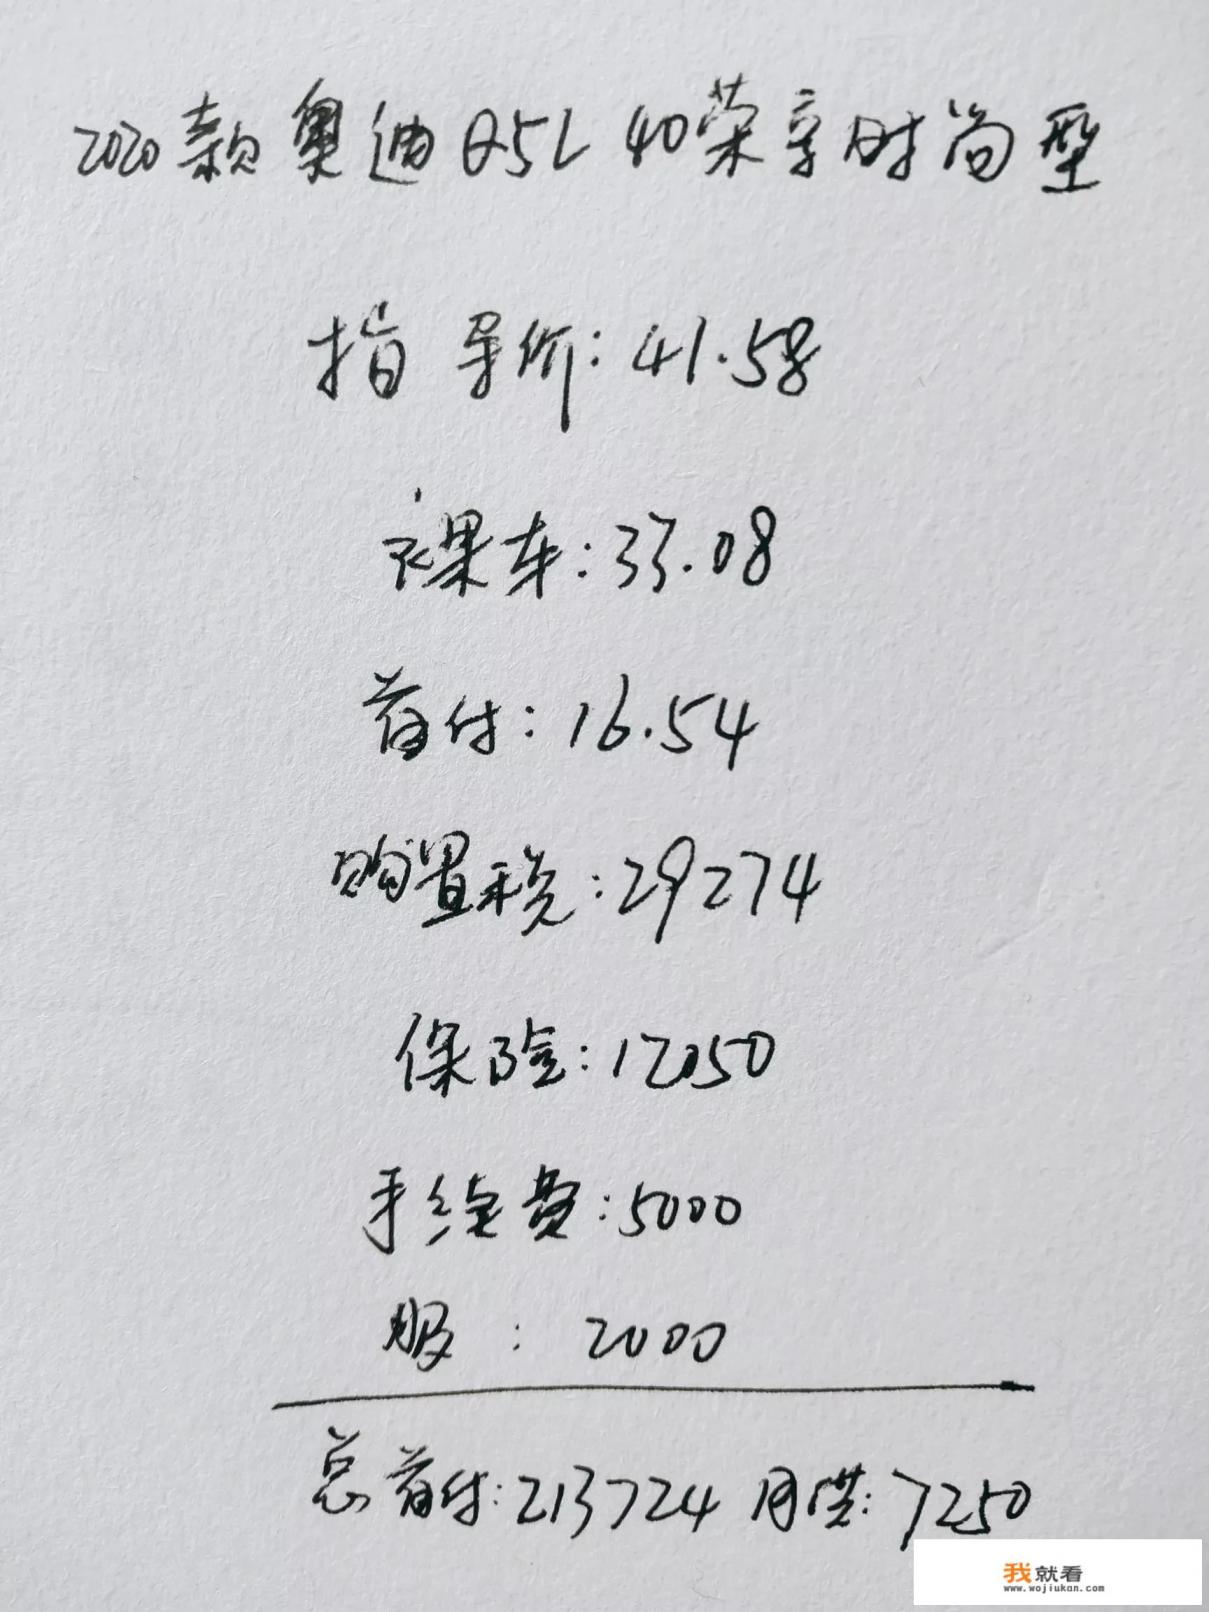 2020款奥迪Q5L 40荣享时尚型
指导价:41.58
裸车:33.08
首付:16.54
购置税:29274
保险:12050
手续费:5000
服:2000
总首付:213724 月供:7250
我就看
www.wojiukan.com